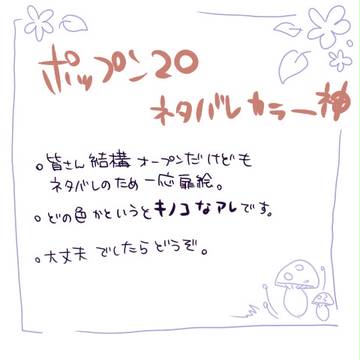 ポップン20
ネタバレカラー神
。皆さん結構オープンだけども
ネタバレのため一応扉絵。
。どの色かというとキノコなアレです。
。大丈夫でしたらどうぞ。